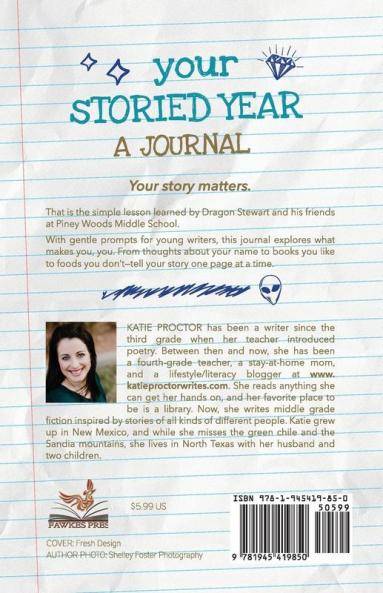 your
STORIED YEAR
A JOURNAL
Your story matters.
That is the simple lesson learned by Dragon Stewart and his friends
at Piney Woods Middle School.
With gentle prompts for young writers, this journal explores what
makes you, you. From thoughts about your name to books you like
to foods you don't—tell your story one page at a time.
KATIE PROCTOR has been a writer since the
third grade when her teacher introduced
poetry. Between then and now, she has been
a fourth-grade teacher, a stay-at-home mom,
and a lifestyle/literacy blogger at www.
katieproctorwrites.com. She reads anything she
can get her hands on, and her favorite place to
be is a library. Now, she writes middle grade
fiction inspired by stories of all kinds of different people. Katie grew
up in New Mexico, and while she misses the green chile and the
Sandia mountains, she lives in North Texas with her husband and
two children.
FAWKES PRESS
$5.99 US
ISBN 978-1-945419-85-0
50599
9 781945 419850
COVER: Fresh Design
AUTHOR PHOTO: Shelley Foster Photography